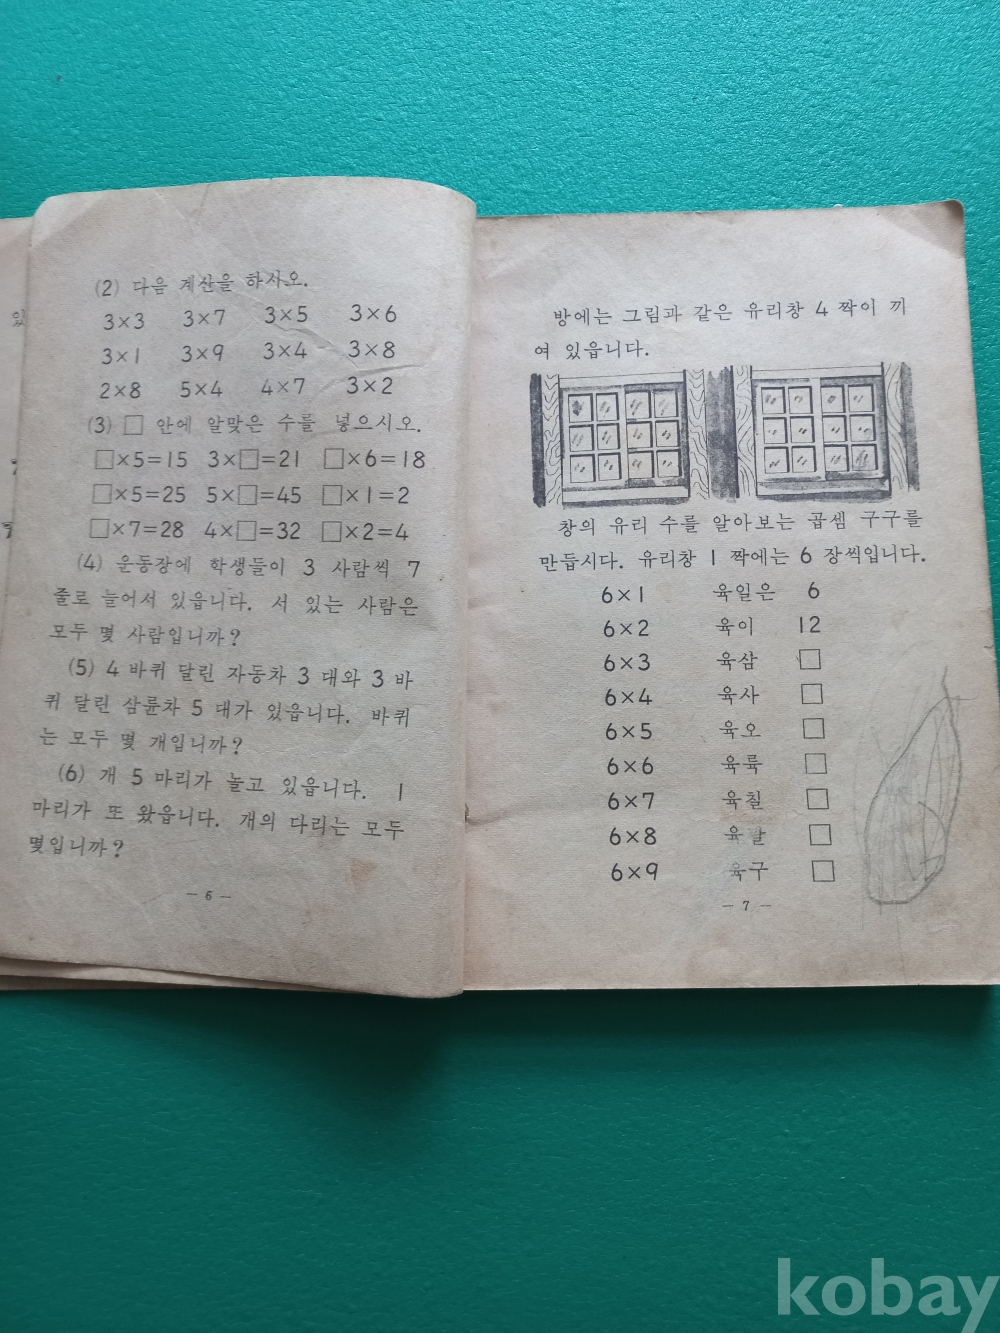 (2) 다음 계산을 하시오.
3×3 3×7 3×5 3×6
3×1 3×9 3×4 3×8
2×8 5×4 4×7 3×2
(3) □ 안에 알맞은 수를 넣으시오.
□×5=15 3×□=21 □×6=18
□×5=25 5×□=45 □×1=2
□×7=28 4×□=32 □×2=4
(4) 운동장에 학생들이 3 사람씩 7
줄로 늘어서 있읍니다. 서 있는 사람은
모두 몇 사람입니까?
(5) 4 바퀴 달린 자동차 3 대와 3 바
퀴 달린 삼륜차 5 대가 있읍니다. 바퀴
는 모두 몇 개입니까?
(6) 개 5 마리가 놀고 있읍니다. 1
마리가 또 왔읍니다. 개의 다리는 모두
몇입니까?
— 6 —
방에는 그림과 같은 유리창 4 짝이 끼
여 있읍니다.
창의 유리 수를 알아보는 곱셈 구구를
만듭시다. 유리창 1 짝에는 6 장씩입니다.
6×1 육일은 6
6×2 육이 12
6×3 육삼 □
6×4 육사 □
6×5 육오 □
6×6 육륙 □
6×7 육칠 □
6×8 육팔 □
6×9 육구 □
— 7 —
kobay